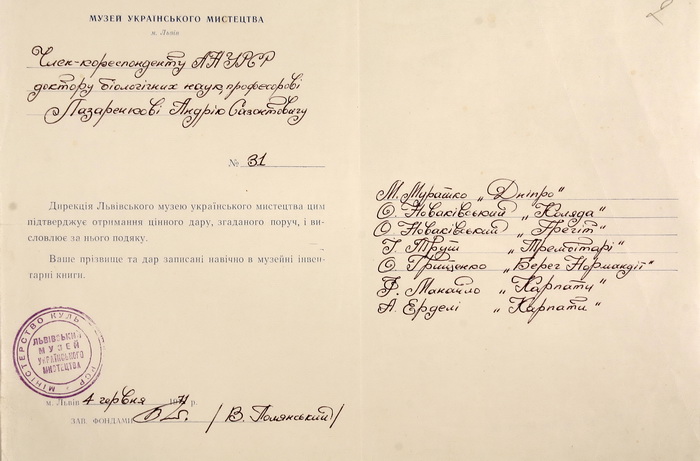 МУЗЕЙ УКРАЇНСЬКОГО МИСТЕЦТВА
м. Львів
Член-кореспонденту АН УРСР
доктору біологічних наук, професорові
Лазаренкові Андрію Сазонтовичу
№ 31
Дирекція Львівського музею українського мистецтва цим
підтверджує отримання цінного дару, згаданого поруч, і ви-
словлює за нього подяку.
Ваше прізвище та дар записані навічно в музейні інвен-
тарні книги.
МІНІСТЕРСТВО КУЛЬ РСР
ЛЬВІВСЬКИЙ
МУЗЕЙ
УКРАЇНСЬКОГО
МИСТЕЦТВА
м. Львів 4 червня 1971 р.
ЗАВ. ФОНДАМИ /В. Полянський/
М. Мурашко „Дніпро"
О. Новаківський „Коляда"
О. Новаківський „Грегіт"
І. Труш „Трембітарі"
О. Грищенко „Берег Нормандії"
Ф. Манайло „Карпати"
А. Ерделі „Карпати"